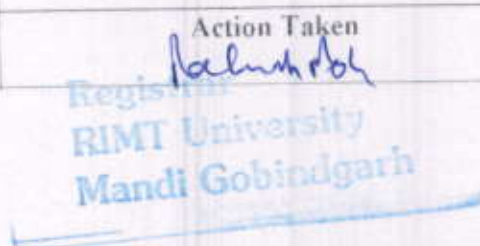 Action Taken
Registrar
RIMT University
Mandi Gobindgarh